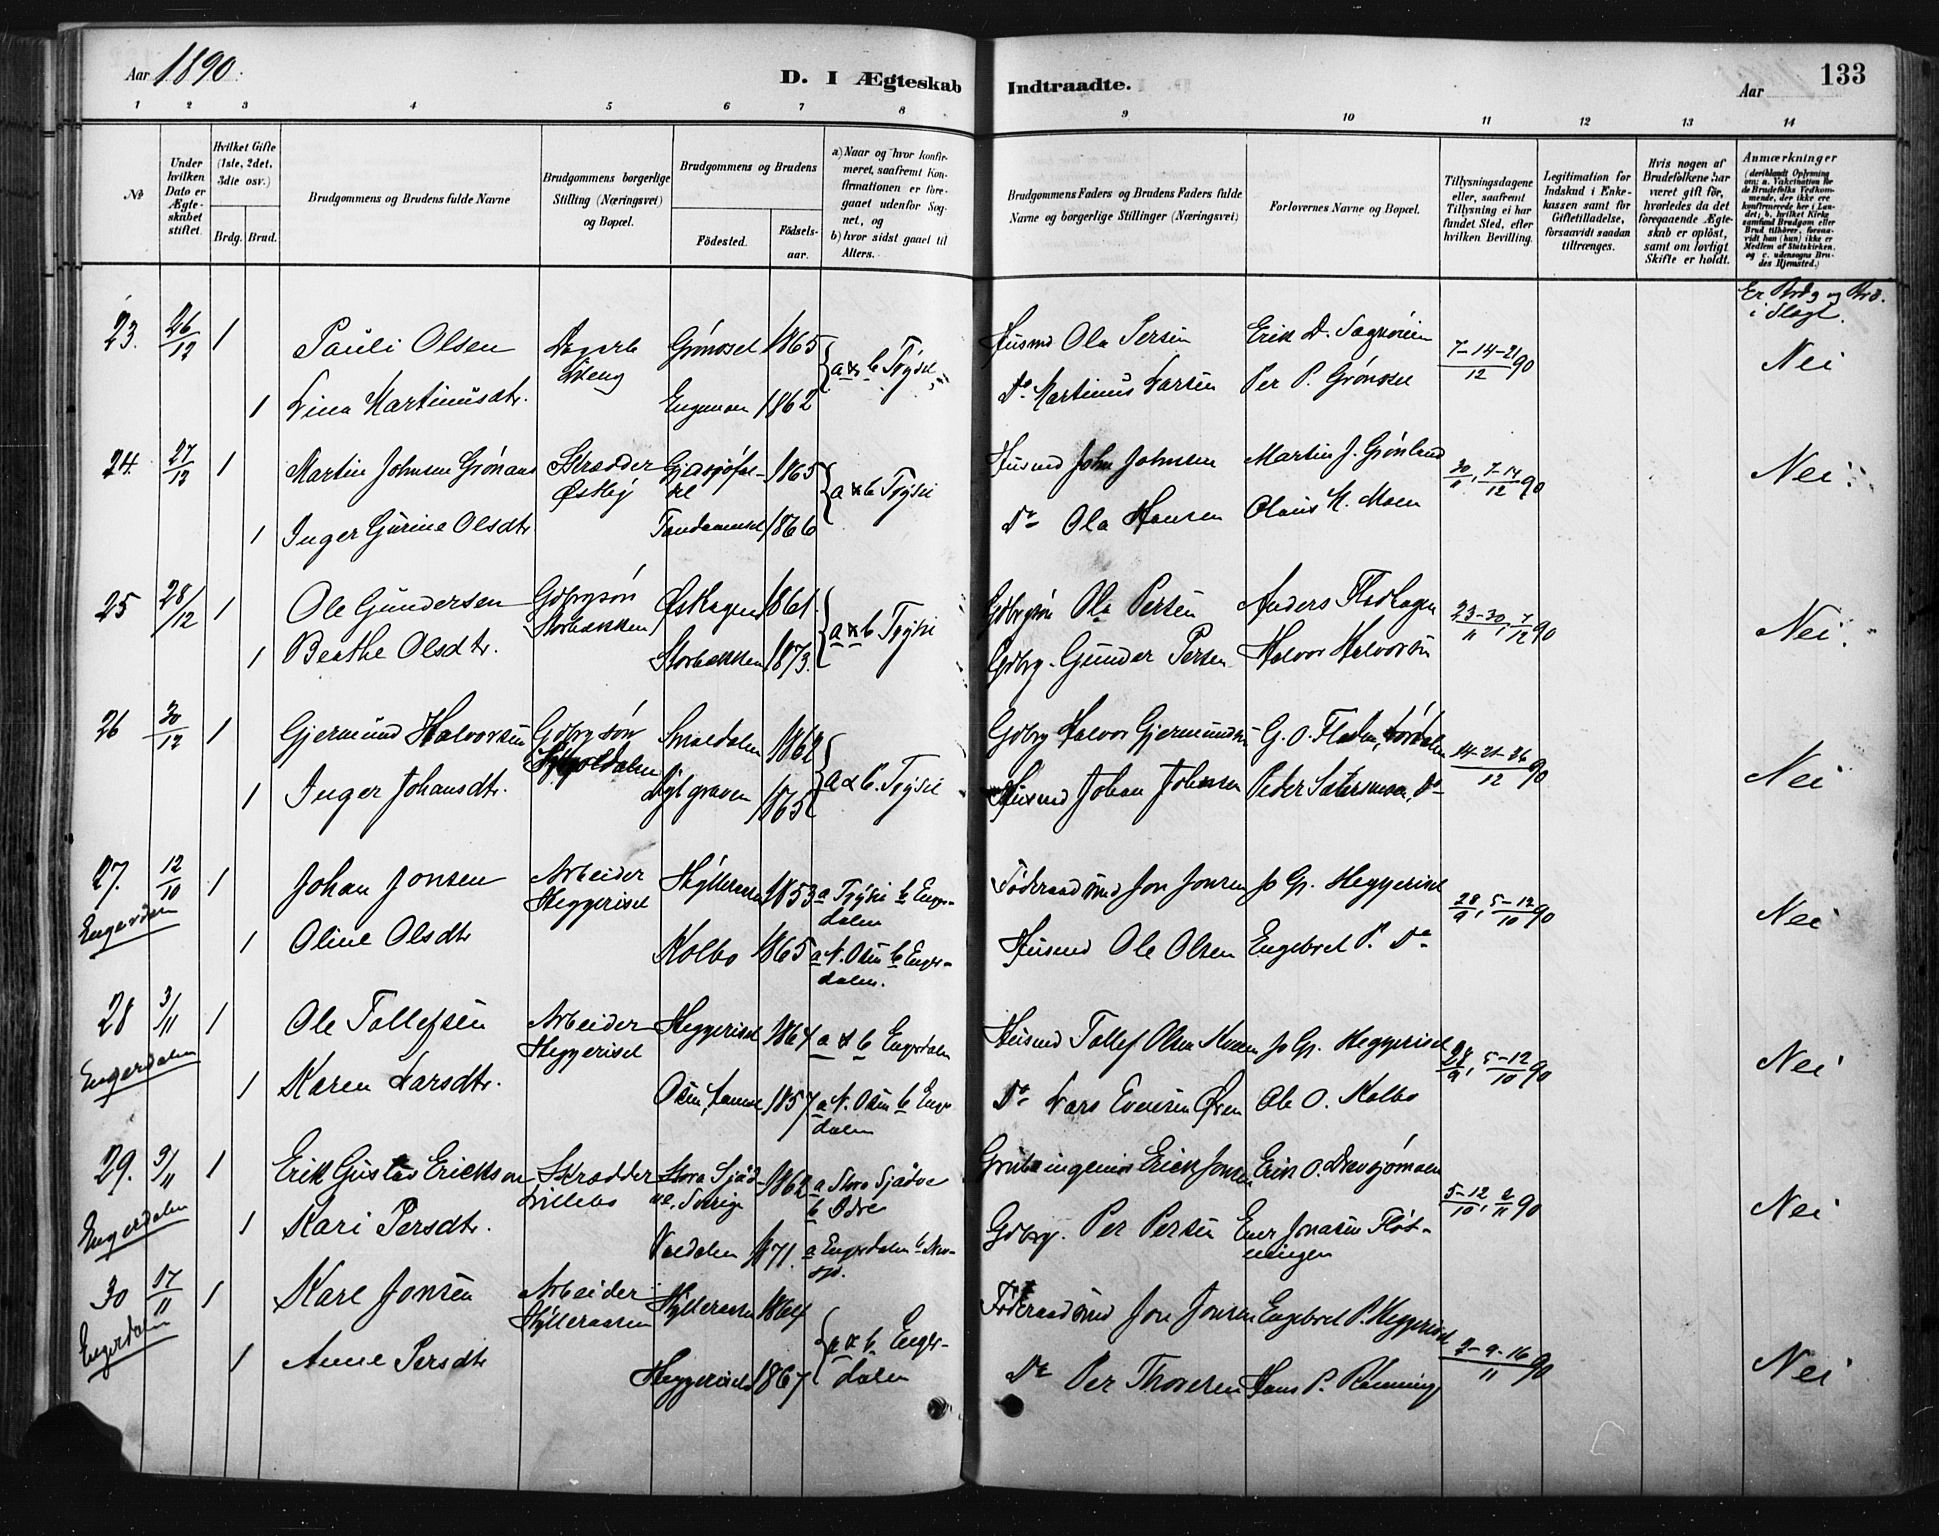 Aar 1890.
D. I Ægteskab Indtraadte.
Aar
133
1 2 3 4 5 6 7 8 9 10 11 12 13 14
№
Under hvilken Dato er Ægteskabet stiftet.
Hvilket Gifte (1ste, 2det, 3die osv.)
Brdg. Brud.
Brudgommens og Brudens fulde Navne
Brudgommens borgerlige Stilling (Næringsvei) og Bopæl.
Brudgommens og Brudens
Födested. Födselsaar.
a) Naar og hvor konfirmeret, saafremt Konfirmationen er foregaaet udenfor Sognet, og
b) hvor sidst gaaet til Alters.
Brudgommens Faders og Brudens Faders fulde Navne og borgerlige Stillinger (Næringsvei)
Forlovernes Navne og Bopæl.
Tillysningsdagene eller, saafremt Tillysning ei har fundet Sted, efter hvilken Bevilling.
Legitimation for Indskud i Enkekassen samt for Giftetilladelse, forsaavidt saadan tiltrænges.
Hvis nogen af Brudefolkene har været gift för, hvorledes da det foregaaende Ægteskab er oplöst, samt om lovligt Skifte er holdt.
Anmærkninger (deriblandt Oplysning om: a. Vakcination for de Brudefolks Vedkommende, der ikke ere konfirmerede her i Landet; b. hvilket Kirkesamfund Brudgom eller Brud tilhörer, forsaavidt han (hun) ikke er Medlem af Statskirken, og c. udensogns Brudes Hjemsted.)
Er Brdg og Brd. i Slægt.
23. 26/12 1 Pauli Olsen Grönoset 1865 a & b Trysil Husmd Ola Persen 7-14-21/12 90 Nei
1 Lina Martinusdtr. Engmoen 1862 Do Martinus Larsen Per P. Grönoset
24 27/12 1 Martin Johnsen Grönaas Skrædder Östby 1865 a & b Trysil Husmd John Johnsen Martin J. Grönlund 30/11, 7-14/12 90 Nei
1 Inger Gurine Olsdtr 1866 Do Ola Hansen Olaus M. Moen
25 28/12 1 Ole Gundersen Gdbrgsön Storbækken Östhagen 1861. a & b Trysil Gdbrgsön Ola Persen Anders Flodhagen 23-30/11, 7/12 90 Nei.
1 Beathe Olsdtr. Storbækken 1873. Gdbrg. Gunder Persen Halvor Halvorsön
26 30/12 1 Gjermund Halvorsen Gdbrgsön 1862 a & b. Trysil Gdbrg Halvor Gjermundsen G. O. Floden, Lördalen 14-21-26/12 90 Nei
1 Inger Johansdtr. 1865 Husmd Johan Johnsen Peder Sætersmoen, Do
27. 12/10 1 Johan Jonsen Arbeider Heggeriset Hylleraasen 1853 a Trysil b Engerdalen Föderaadsmd Jon Jonsen Jo Gp. Heggeriset 28/9, 5-12/10 90 Nei
Engerdalen
1 Oline Olsdtr Kolbo 1865 a N. Osen b Engerdalen. Husmd Ole Olsen Engebret P. Do
28 3/11 1 Ole Tollefsen Arbeider Heggeriset Heggeriset 1864 a & b Engerdalen Husmd Tollef Olsen Jo Gp. Heggeriset 28/9, 5-12/10 90 Nei
Engerdalen
1 Karen Larsdtr. Osen 1857 a N. Osen b Engerdalen Do Lars Evensen Ole O. Kolbo
29. 9/11 1 Erik Gustav Erickson Skrædder Lillebo Stora Sjädve, Sverige 1862 a Stora Sjädve b Idre Erick Jonsen Erik O. Drevsjömoen 5-12/10, 2/11 90 Nei
Engerdalen
1 Kari Persdtr. 1871. a Engerdalen Gdbrg. Per Persen Ener Jonasen Flötningen
30 17/11 1 Kare Jonsen Arbeider Hylleraasen Hylleraasen 1864 a & b Engerdalen Föderaadsmd Jon Jonsen Engebret P. Heggeriset 2-9-16/11 90 Nei
Engerdalen
1 Anne Persdtr Heggeriset 1867 Do Per Thoresen Hans P. Rönning